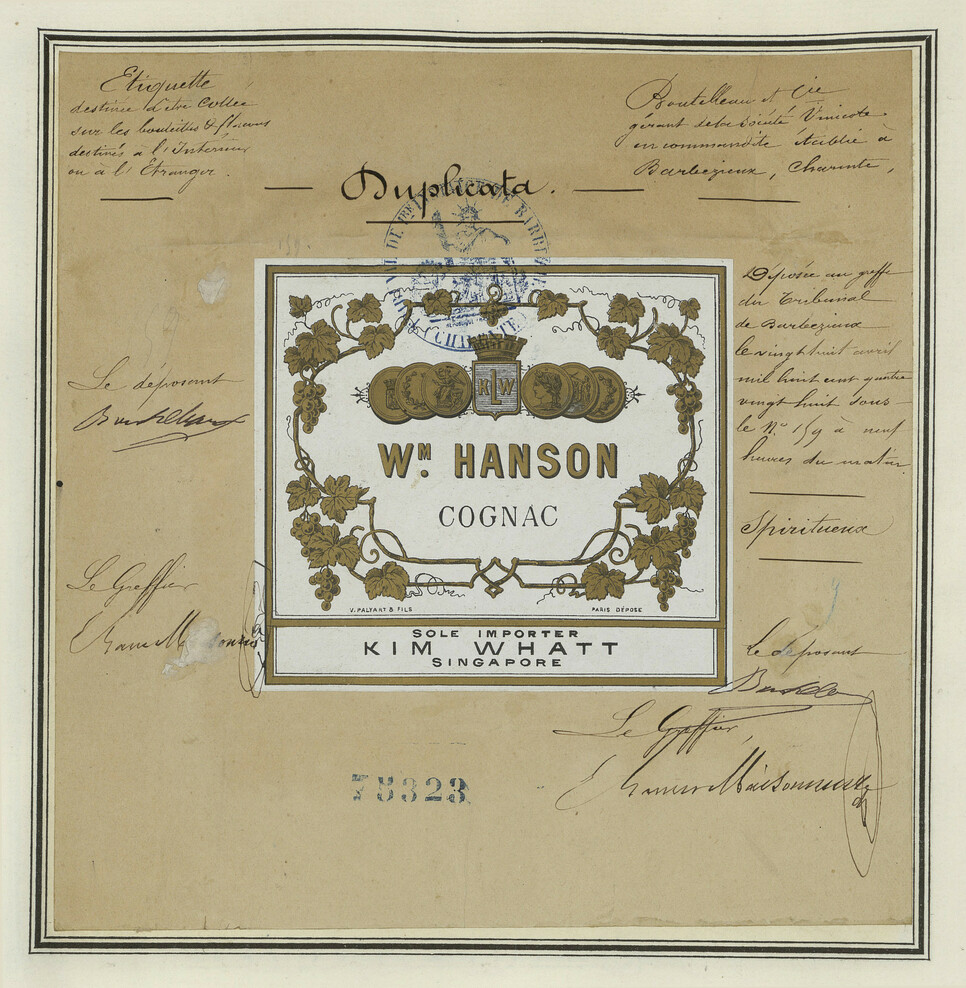 Etiquette
destinée à être Collée
sur les bouteilles & flacons
destinés à l'Intérieur
ou à l'Etranger.
Boutelleau et Cie
gérant de la Société Vinicole
en commandite établie à
Barbezieux, Charente,
Duplicata.
159
CHARENTE
Déposée au greffe
du Tribunal
de Barbezieux
le vingt huit avril
mil huit cent quatre
vingt huit sous
le No. 159 à neuf
heures du matin.
Spiritueux
Le déposant
Boutelleau
Le Greffier
KLW
WM. HANSON
COGNAC
V. PALYART & FILS
PARIS DÉPOSÉ
SOLE IMPORTER
KIM WHATT
SINGAPORE
Le déposant
Le Greffier
78323